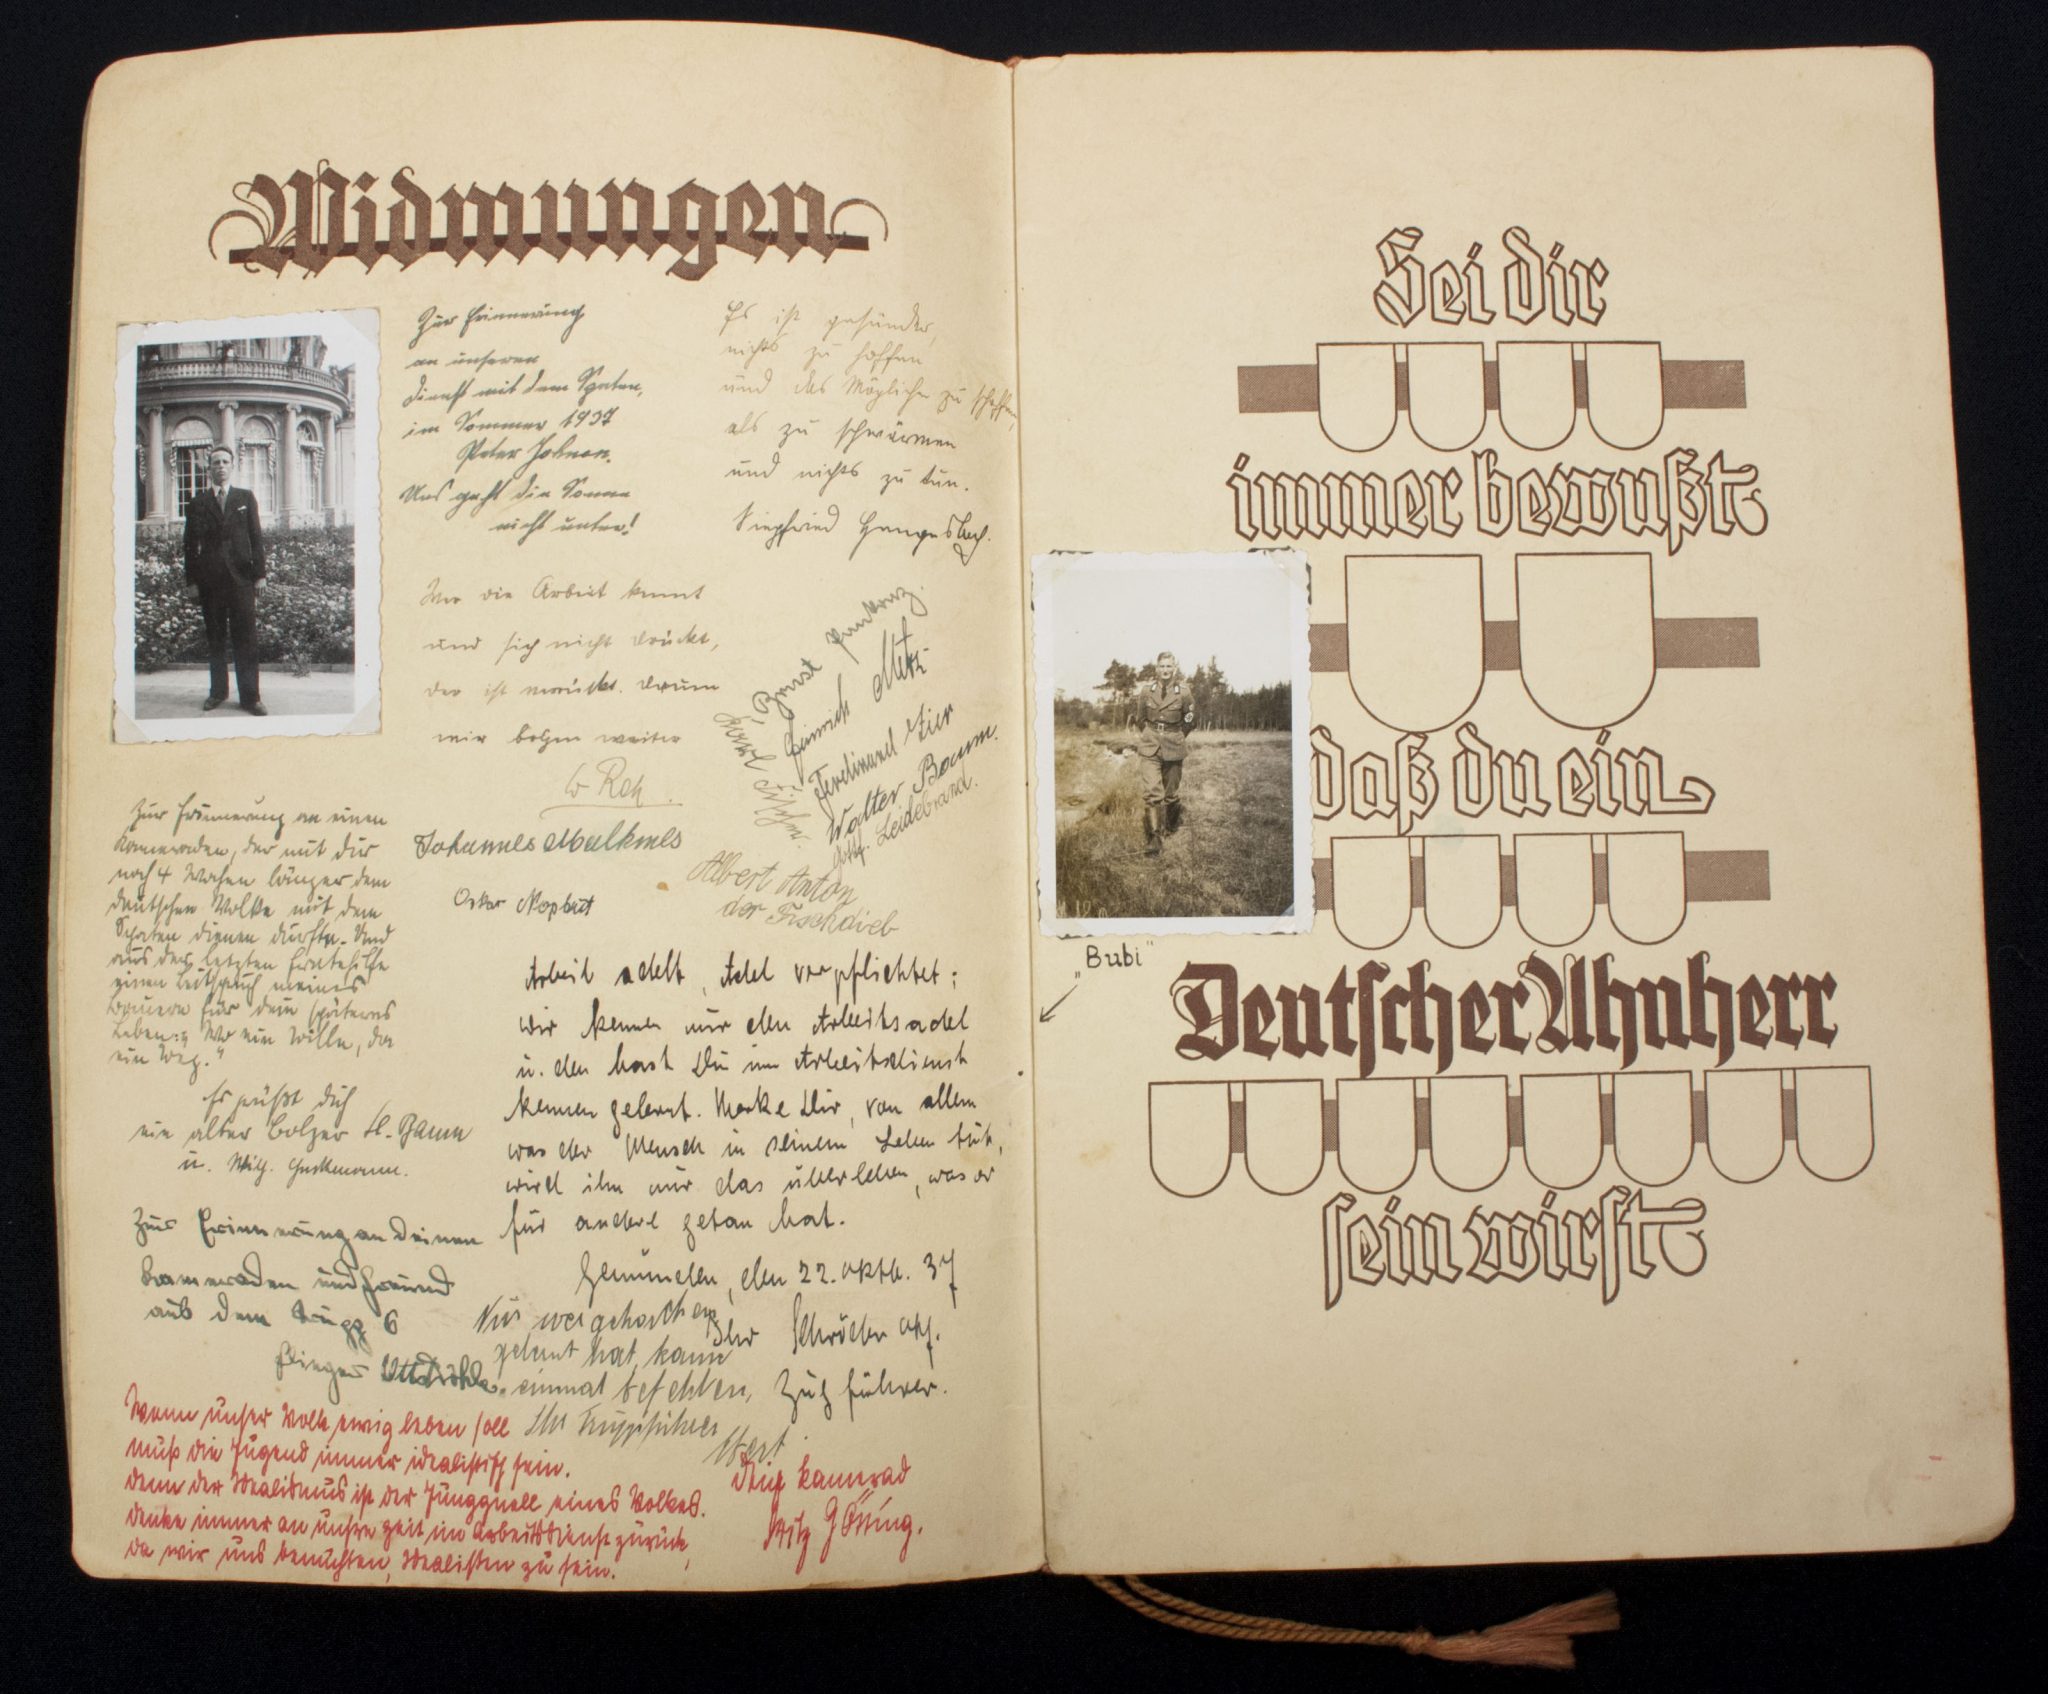 Widmungen
Zur Erinnerung
an unseren
Dienst mit dem Spaten,
im Sommer 1937
Peter
Uns geht die Sonne
nicht unter!
Es ist gesünder,
nichts zu hoffen
und das Mögliche zu schaffen,
als zu schwärmen
und nichts zu tun.
Siegfried
Wer die Arbeit kennt
und sich nicht drückt,
der ist verrückt. Drum
wir bolzen weiter
Johannes Malkmes
Oskar
Ernst
Heinrich Metz
Ferdinand Eier
Walter Baum.
Leidebrand.
Karl Fischer.
Albert Anton
der Fischdieb
Zur Erinnerung an einen
Kameraden, der mit dir
noch 4 Wochen länger dem
deutschen Volke mit dem
Spaten dienen durfte. Und
aus der letzten Erntehilfe
einen Leitspruch meines
Bauern für dein späteres
Leben: „Wo ein Wille, da
ein Weg."
Es grüßt dich
ein alter Bolzer H. Baum
u. Wilh.
Zur Erinnerung an Deinen
Kameraden und Freund
aus dem Trupp 6
Arbeit adelt, Adel verpflichtet:
Wir kennen nur den Arbeitsadel
u. den hast Du im Arbeitsdienst
kennen gelernt. Merke Dir, von allem
was der Mensch in seinem Leben tut,
wird ihn nur das überleben, was er
für andere getan hat.
Gemünden, den 22. Oktb. 37
Ihr Schröder
Zugführer.
Nur wer gehorchen
gelernt hat, kann
einmal befehlen,
Ihr Truppführer
Wenn unser Volk ewig leben soll
muß die Jugend immer idealistisch sein.
denn der Idealismus ist der Jungquell eines Volkes.
denke immer an unsre Zeit im Arbeitsdienst zurück,
da wir uns bemühten, Idealisten zu sein.
Dein Kamerad
Fritz Götting.
Sei dir
immer bewußt
daß du ein
„Bubi"
Deutscher Ahnherr
sein wirst